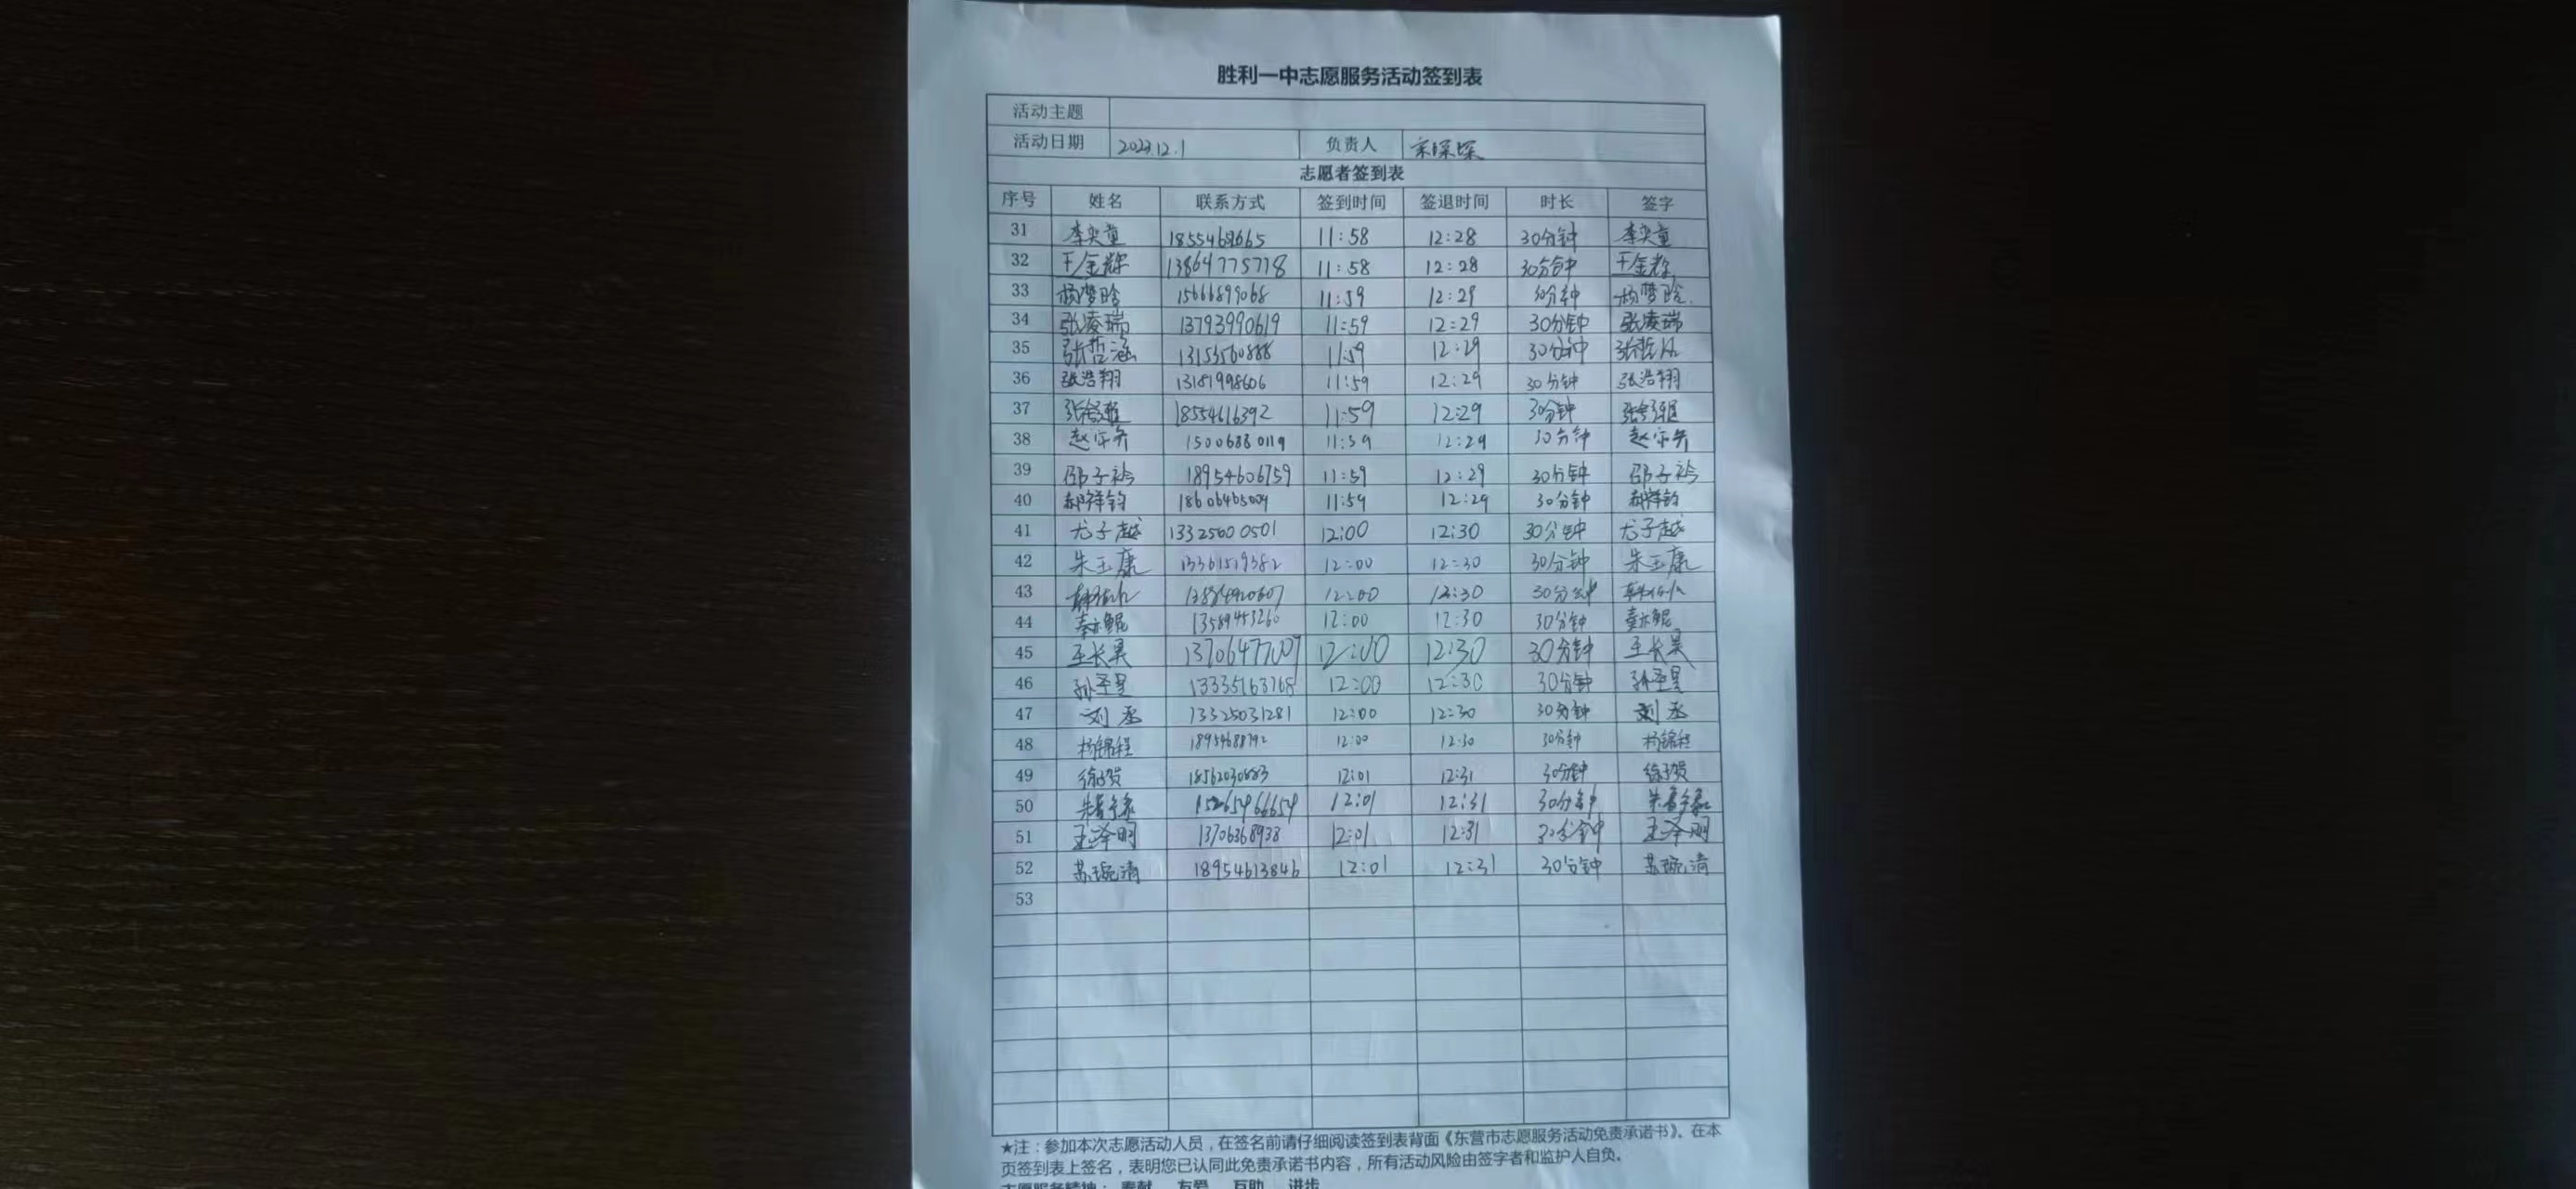 胜利一中志愿服务活动签到表
活动主题
活动日期 2023.12.1 负责人
志愿者签到表
序号 姓名 联系方式 签到时间 签退时间 时长 签字
31 李奕童 11:58 12:28 30分钟 李奕童
32 王金辉 13864775778 11:58 12:28 30分钟 王金辉
33 杨梦晗 15666899068 11:59 12:29 30分钟 杨梦晗
34 张凌瑞 13793990619 11:59 12:29 30分钟 张凌瑞
35 张哲涵 13153560888 11:59 12:29 30分钟 张哲涵
36 张浩翔 13181998606 11:59 12:29 30分钟 张浩翔
37 18554616392 11:59 12:29 30分钟
38 15006880119 11:59 12:29 30分钟
39 邵子衿 18954606759 11:59 12:29 30分钟 邵子衿
40 郝祥钧 18606465009 11:59 12:29 30分钟 郝祥钧
41 尤子越 13325600501 12:00 12:30 30分钟 尤子越
42 朱玉康 13361519382 12:00 12:30 30分钟 朱玉康
43 12:00 12:30 30分钟
44 秦亦鲲 13589453260 12:00 12:30 30分钟 秦亦鲲
45 王长昊 13706477009 12:00 12:30 30分钟 王长昊
46 孙圣昱 13335163768 12:00 12:30 30分钟 孙圣昱
47 刘丞 13325031281 12:00 12:30 30分钟 刘丞
48 杨锦程 12:00 12:30 30分钟 杨锦程
49 徐子贺 18562030883 12:01 12:31 30分钟 徐子贺
50 15265466654 12:01 12:31 30分钟
51 王泽明 13706368938 12:01 12:31 30分钟 王泽明
52 苏琬清 18954613846 12:01 12:31 30分钟 苏琬清
53
★注：参加本次志愿活动人员，在签名前请仔细阅读签到表背面《东营市志愿服务活动免责承诺书》。在本
页签到表上签名，表明您已认同此免责承诺书内容，所有活动风险由签字者和监护人自负。
志愿服务精神： 奉献 友爱 互助 进步